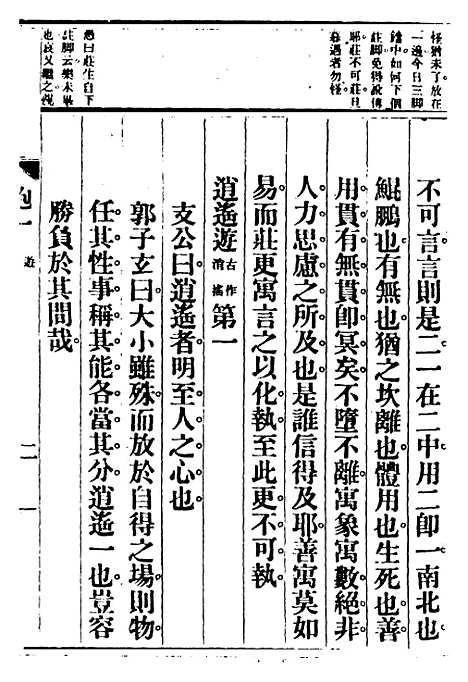 怪猶未了放在
一邊今日三腳
鐺中如何下個
註腳免得說傳
耶莊不可莊且
暮遇者勿怪
愚曰莊生自下
註腳云樂未畢
也哀又繼之觀
不可言言則是二一在二中用二卽一南北也
鯤鵬也有無也猶之坎離也體用也生死也善
用貫有無貫卽冥矣不墮不離寓象寓數絕非
人力思慮之所及也是誰信得及耶善寓莫如
易而莊更寓言之以化執至此更不可執
逍遙遊古作消搖第一
支公曰逍遙者明至人之心也
郭子玄曰大小雖殊而放於自得之場則物
任其性事稱其能各當其分逍遙一也豈容
勝負於其間哉
一 遊 二